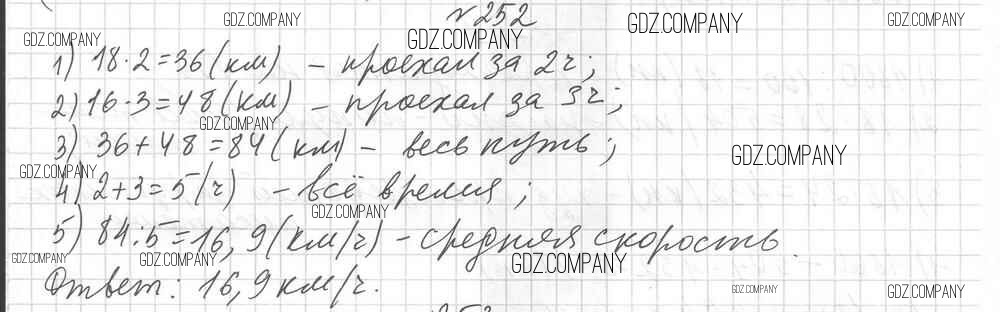 №252
1) 18·2=36(км) – проехал за 2ч;
2) 16·3=48(км) – проехал за 3ч;
3) 36+48=84(км) – весь путь;
4) 2+3=5(ч) – всё время;
5) 84:5=16,9(км/ч) – средняя скорость.
Ответ: 16,9км/ч.
GDZ.COMPANY
GDZ.COMPANY
GDZ.COMPANY
GDZ.COMPANY
GDZ.COMPANY
GDZ.COMPANY
GDZ.COMPANY
GDZ.COMPANY
GDZ.COMPANY
GDZ.COMPANY
GDZ.COMPANY
GDZ.COMPANY
GDZ.COMPANY
GDZ.COMPANY